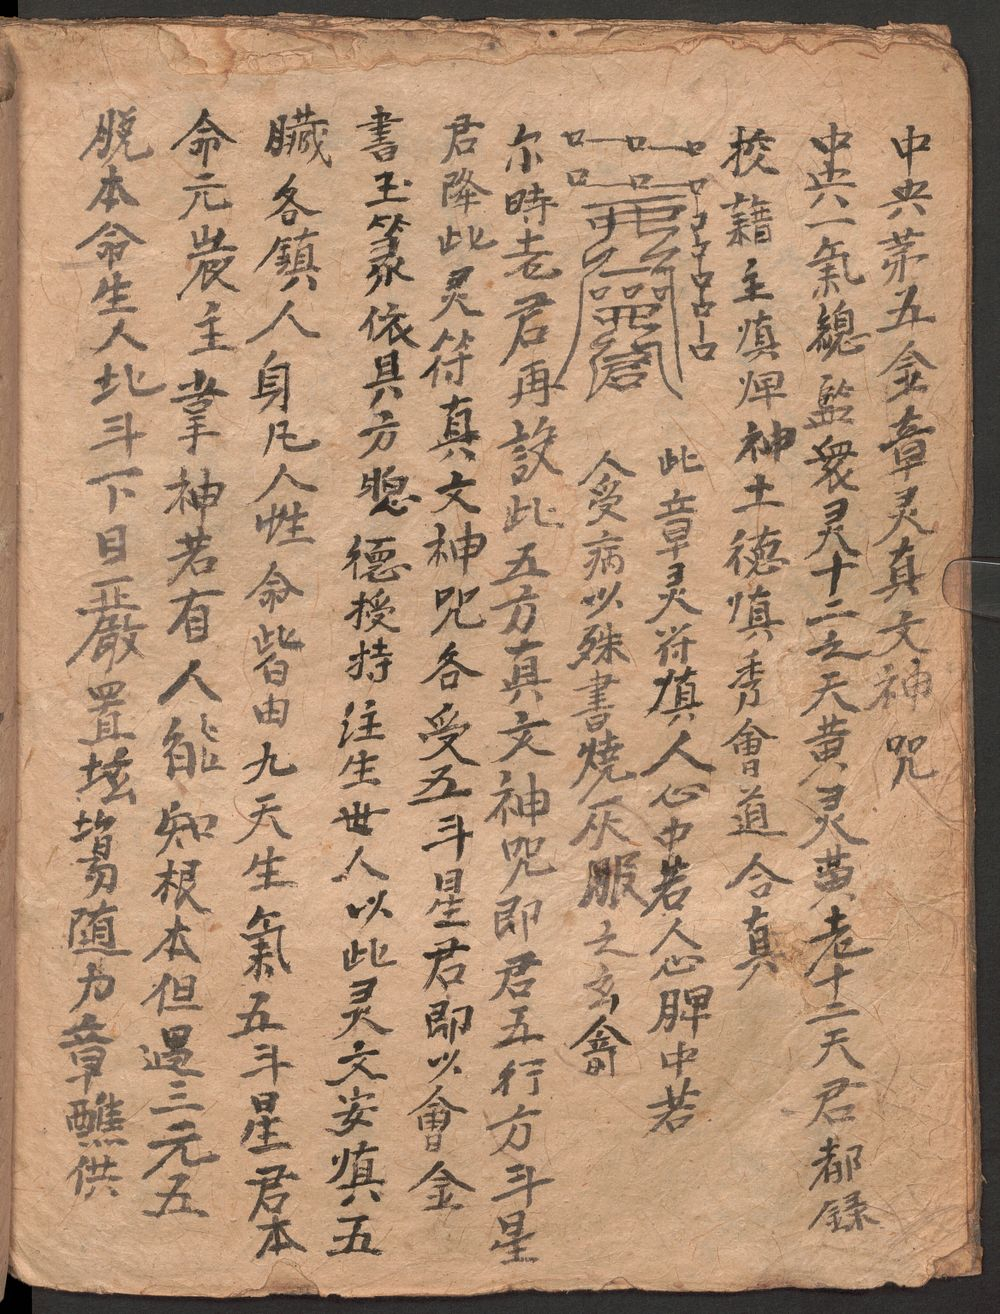 中央苐五金章灵真文神咒
中央一氣總監衆灵十二之天黄灵黄老十二天君都録
挍藉主慎焊神土德慎秀會道合真
此章灵符慎人心中若人心脾中若
人受病以殊書燒灰服之玄龠
尔時老君再設此五方真文神咒即君五行方斗星
君降此灵符真文神咒各受五斗星君即以會金
書玉箓依具方懸德授持注生世人以此灵文安慎五
臟各鎮人身凡人性命皆由九天生氣五斗星君本
命元辰主掌神若有人能知根本但遇三元五
脫本命生人北斗下日嚴置坛塲随力章醮供